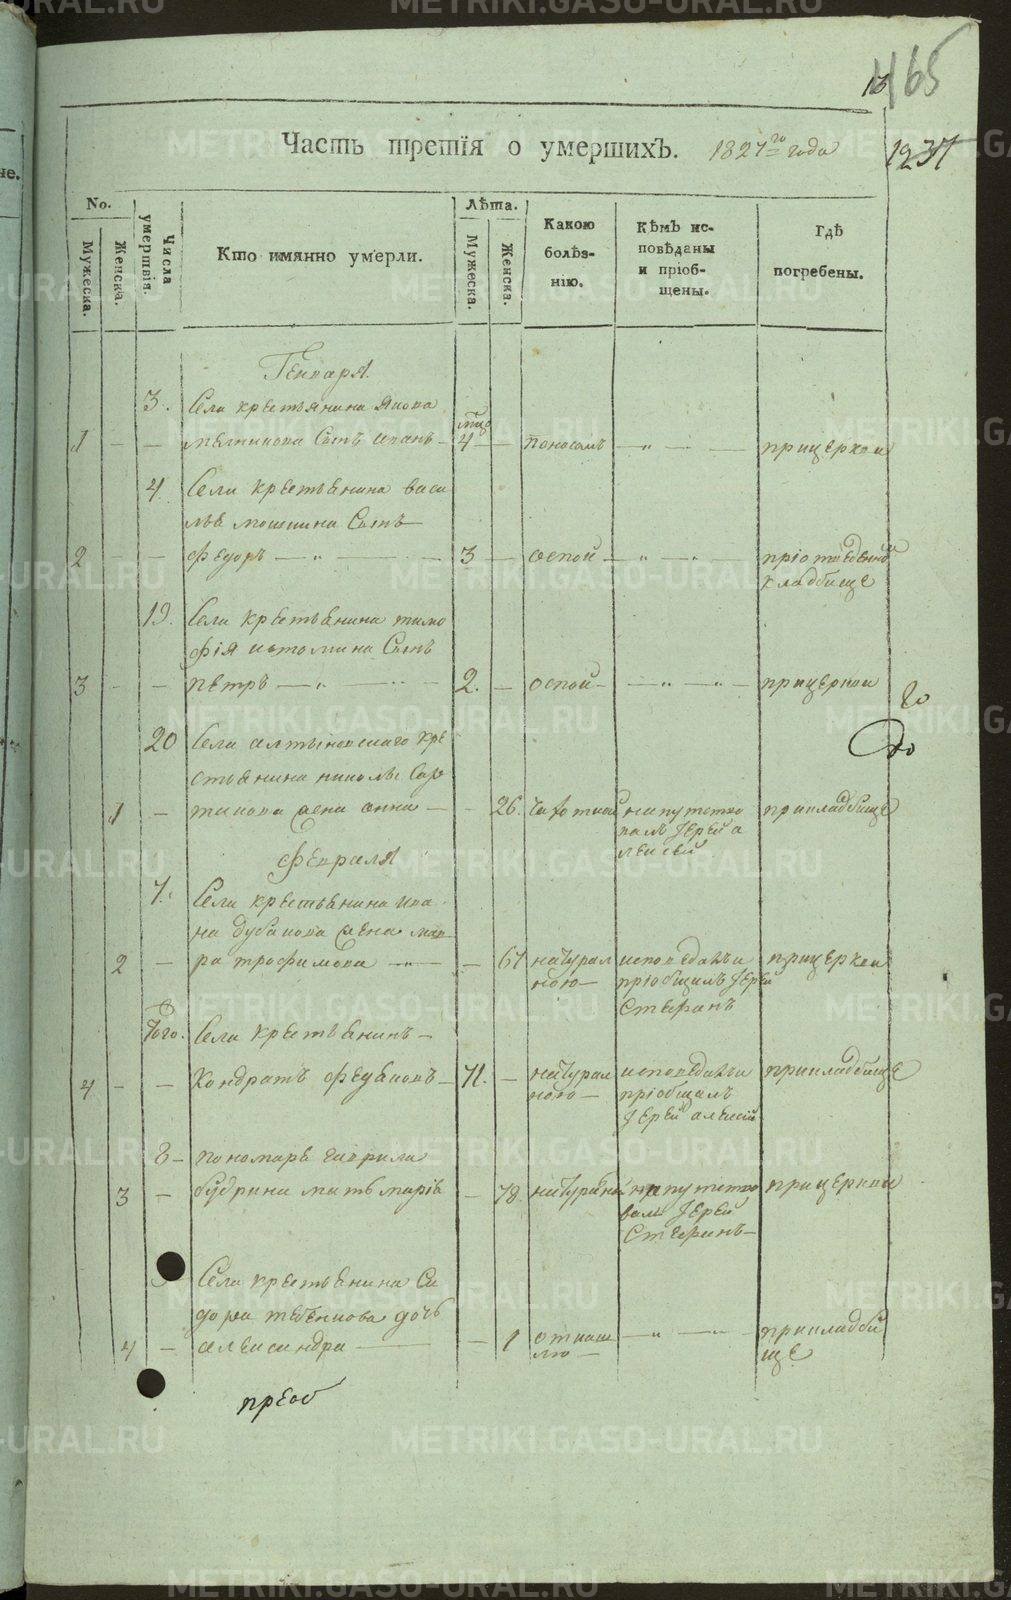 465
13
Часть третія о умершихъ. 1827го года
1237
No.
Мужеска.
Женска.
Числа умертвія.
Кто имянно умерли.
Лѣта.
Мужеска.
Женска.
Какою болѣз-
нію.
Кѣмъ ис-
повѣданы
и пріоб-
щены.
Гдѣ
погребены.
Генваря
3. Села крестьянина Якова
1 - - Мелникова Сынъ Иванъ - 4 - поносомъ - " - прицеркви
4. Села крестьянина Васи
лья Мошкина Сынъ -
2 - - Федоръ - " - 3 - оспой - " - " - приотведеном
кладбище
19. Села крестьянина Тимо
фія Истомина Сынъ
3 - - Петръ - " - 2. - оспой - - " - " - прицеркви
20 Села Алтыновскаго кре
стьянина Николы
1 - жена Анна - - 26. чахоткой напутство
валъ Іерей А
лексей прикладбище
Февраля
7. Села крестьянина Ива
на Дубакова жена Мав
2 - ра Трофимова - " - - 67 натурал
ною - исповедалъ и
пріобщилъ Іерей
Стефанъ прицеркви
Того. Села крестьянинъ -
4 - - Кондратъ - 71. - натурал
ною - исповедалъ и
пріобщалъ
Іерей Алексій прикладбище
8 - пономаря Гаврила
3 - Будрина мать Марія - 78. напутство
валъ Іерей
Стефанъ - прицеркви
Села крестьянина Си
дора Тебенкова дочь
4 - Александра - - 1 от каш
лю - - " - " - прикладби
ще
преоб
METRIKI.GASO-URAL.RU